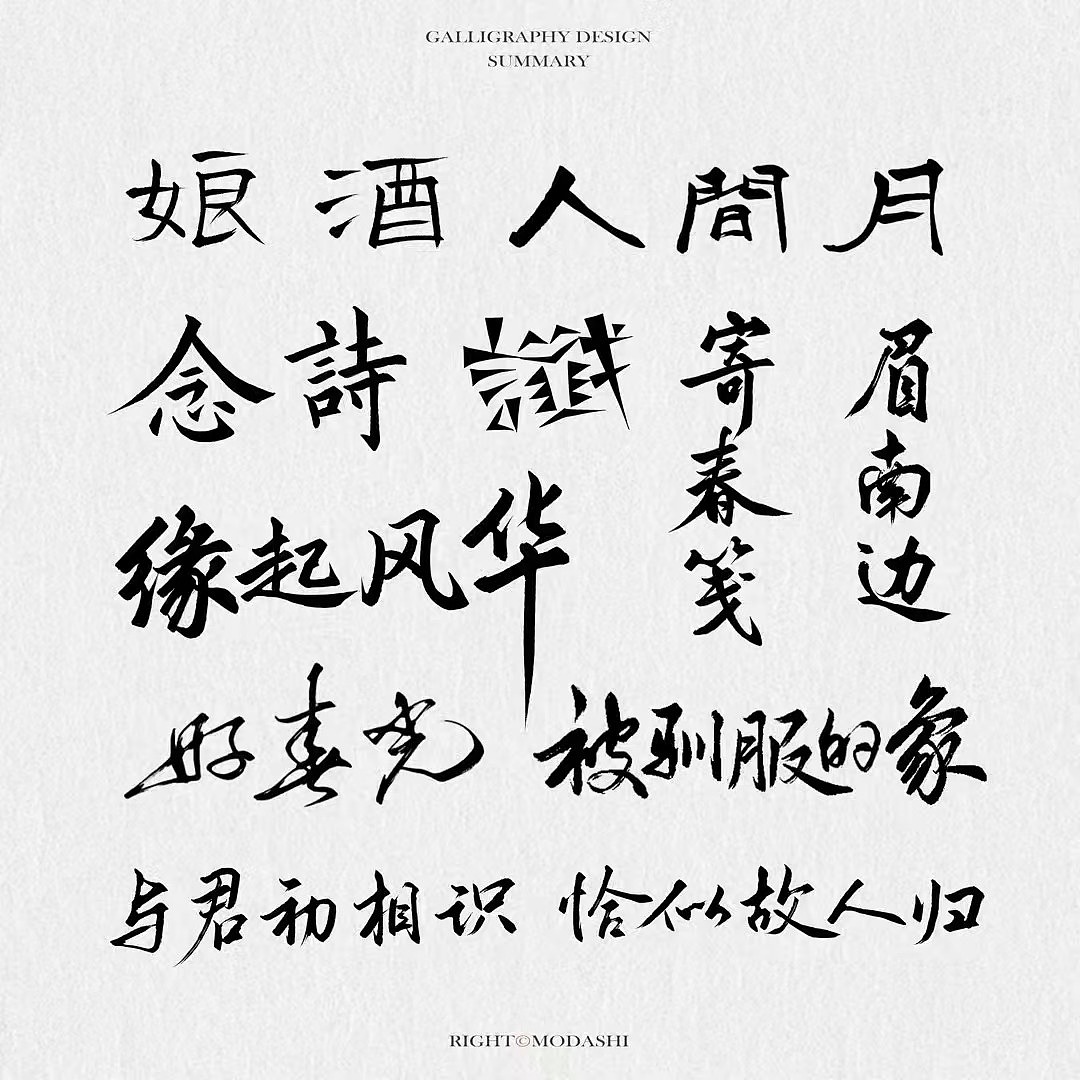 GALLIGRAPHY DESIGN
SUMMARY
娘酒人間月
念詩
讖
寄春笺
眉南边
缘起风华
好春光
被驯服的象
与君初相识 恰似故人归
RIGHT©MODASHI